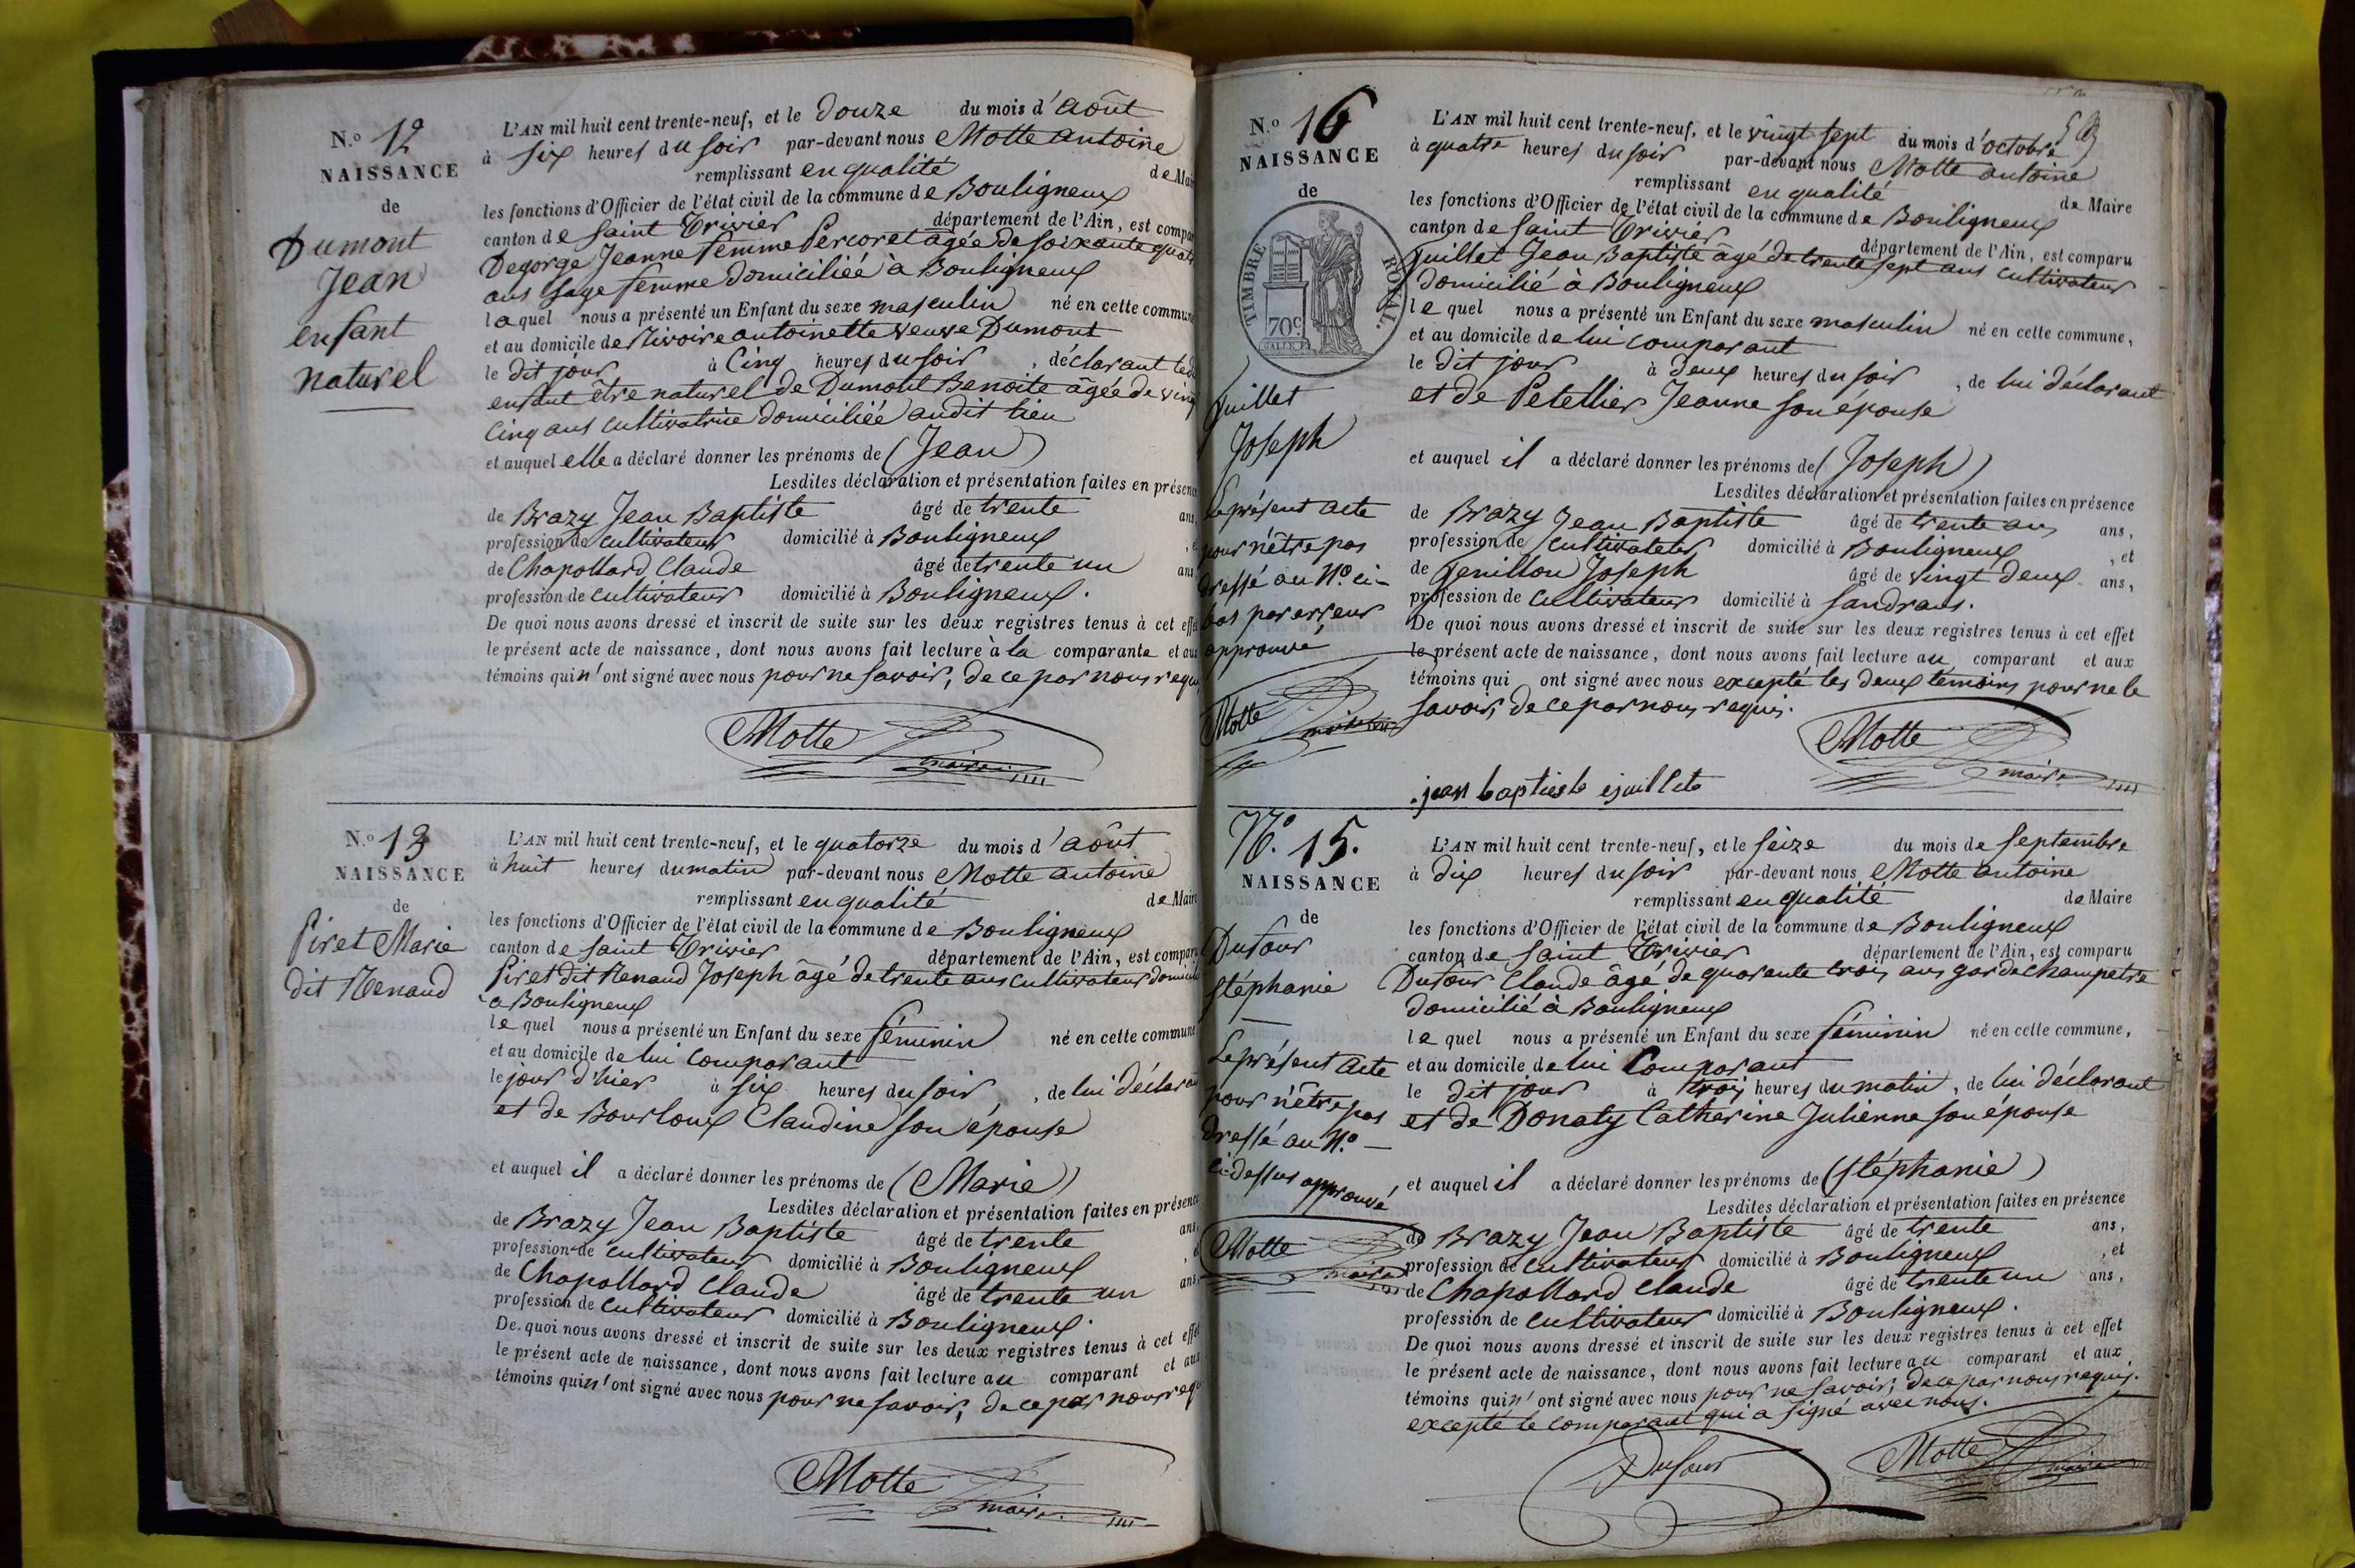 N.o 12
NAISSANCE
de
Dumont
Jean
enfant
naturel
L'AN mil huit cent trente-neuf, et le douze du mois d'août
à six heures du soir par-devant nous Motte antoine
remplissant en qualité de Mai
les fonctions d'Officier de l'état civil de la commune de Bouligneux
canton de Saint Trivier département de l'Ain, est compa
Degorge Jeanne femme Percoret âgée de soixante quatr
ans sage femme domiciliée à Bouligneux
laquel nous a présenté un Enfant du sexe masculin né en cette commune
et au domicile de Rivoire antoinette veuve Dumont
le dit jour à Cinq heures du soir, déclarant led
enfant être naturel de Dumont Benoite âgée de vingt
Cinq ans cultivatrice domiciliée audit lieu
et auquel elle a déclaré donner les prénoms de (Jean)
Lesdites déclaration et présentation faites en présence
de Brazy Jean Baptiste âgé de trente ans,
profession de cultivateur domicilié à Bouligneux, et
de Chapollard Claude âgé de trente un ans
profession de cultivateur domicilié à Bouligneux.
De quoi nous avons dressé et inscrit de suite sur les deux registres tenus à cet effe
le présent acte de naissance, dont nous avons fait lecture à la comparante et aux
témoins qui n'ont signé avec nous pour ne savoir, de ce par nous requ
Motte
maire
N.o 13
NAISSANCE
de
Piret Marie
dit Renaud
L'AN mil huit cent trente-neuf, et le quatorze du mois d'août
à huit heures du matin par-devant nous Motte antoine
remplissant en qualité de Maire
les fonctions d'Officier de l'état civil de la commune de Bouligneux
canton de Saint Trivier département de l'Ain, est comparu
Piret dit Renaud Joseph âgé de trente ans cultivateur domicilié
à Bouligneux
le quel nous a présenté un Enfant du sexe féminin né en cette commune
et au domicile de lui comparant
le jour d'hier à six heures du soir, de lui déclarant
et de Bourloux Claudine son épouse
et auquel il a déclaré donner les prénoms de (Marie)
Lesdites déclaration et présentation faites en présence
de Brazy Jean Baptiste âgé de trente ans,
profession de cultivateur domicilié à Bouligneux, et
de Chapollard Claude âgé de trente un ans
profession de cultivateur domicilié à Bouligneux.
De quoi nous avons dressé et inscrit de suite sur les deux registres tenus à cet effet
le présent acte de naissance, dont nous avons fait lecture au comparant et aux
témoins qui n'ont signé avec nous pour ne savoir, de ce par nous requ
Motte
maire
N.o 16
NAISSANCE
de
TIMBRE ROYAL.
70c.
Juillet
Joseph
Le présent acte
pour n'être pas
dressé au No. ci-
bas par erreur
approuvé
Motte
maire
L'AN mil huit cent trente-neuf, et le vingt sept du mois d'octobre
à quatre heures du soir par-devant nous Motte antoine
remplissant en qualité de Maire
les fonctions d'Officier de l'état civil de la commune de Bouligneux
canton de Saint Trivier département de l'Ain, est comparu
Juillet Jean Baptiste âgé de trente sept ans cultivateur
domicilié à Bouligneux
le quel nous a présenté un Enfant du sexe masculin né en cette commune,
et au domicile de lui comparant
le dit jour à deux heures du soir, de lui déclarant
et de Petellier Jeanne son épouse
et auquel il a déclaré donner les prénoms de (Joseph)
Lesdites déclaration et présentation faites en présence
de Brazy Jean Baptiste âgé de trente ans ans,
profession de cultivateur domicilié à Bouligneux, et
de Genillon Joseph âgé de vingt deux ans,
profession de cultivateur domicilié à Sandrans.
De quoi nous avons dressé et inscrit de suite sur les deux registres tenus à cet effet
le présent acte de naissance, dont nous avons fait lecture au comparant et aux
témoins qui ont signé avec nous excepté les deux témoins pour ne le
savoir, de ce par nous requis.
Motte
maire
jean baptiste ejuillete
No. 15.
NAISSANCE
de
Dufour
Stéphanie
Le présent acte
pour n'être pas
dressé au No.
ci-dessus approuvé
Motte
maire
L'AN mil huit cent trente-neuf, et le seize du mois de septembre
à dix heures du soir par-devant nous Motte antoine
remplissant en qualité de Maire
les fonctions d'Officier de l'état civil de la commune de Bouligneux
canton de Saint Trivier département de l'Ain, est comparu
Dufour Claude âgé de quarante trois ans garde champetre
domicilié à Bouligneux
le quel nous a présenté un Enfant du sexe féminin né en cette commune,
et au domicile de lui Comparant
le dit jour à trois heures du matin, de lui déclarant
et de Donaty Catherine Julienne son épouse
et auquel il a déclaré donner les prénoms de (Stéphanie)
Lesdites déclaration et présentation faites en présence
de Brazy Jean Baptiste âgé de trente ans,
profession de cultivateur domicilié à Bouligneux, et
de Chapollard Claude âgé de trente un ans,
profession de cultivateur domicilié à Bouligneux.
De quoi nous avons dressé et inscrit de suite sur les deux registres tenus à cet effet
le présent acte de naissance, dont nous avons fait lecture au comparant et aux
témoins qui n'ont signé avec nous pour ne savoir, de ce par nous requis.
excepté le comparant qui a signé avec nous.
Dufour
Motte
maire